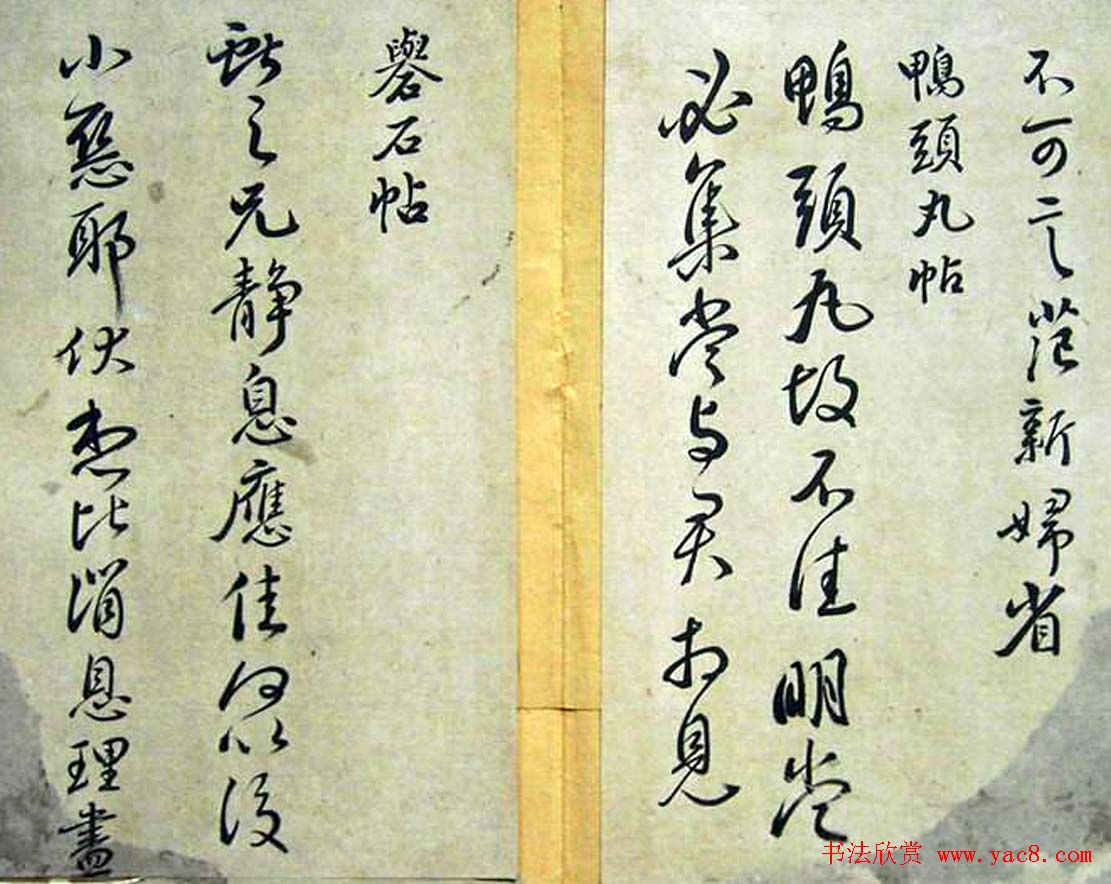 不可言范新婦省
鴨頭丸帖
鴨頭丸故不佳明當
必集當与君相見
礜石帖
獻之兄靜息應佳何以復
小惡耶伏想比消息理盡
书法欣赏 www.yac8.com